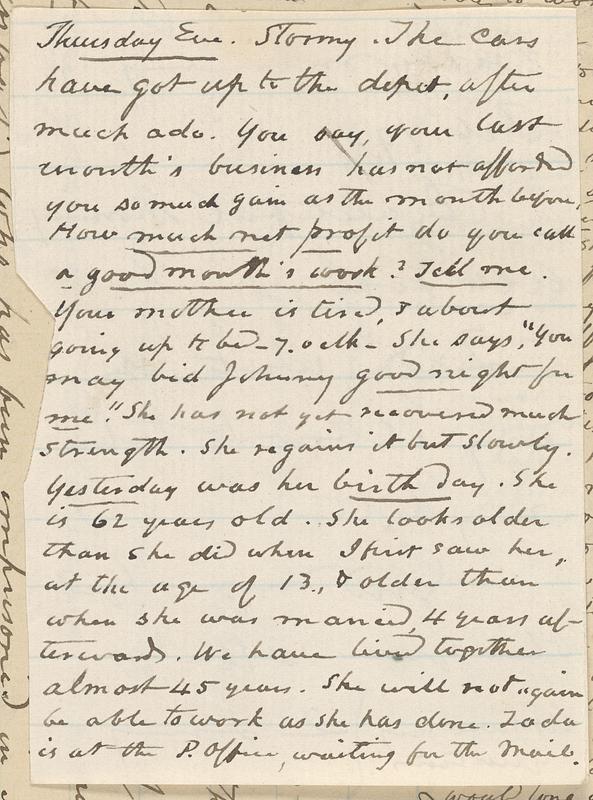 Thursday Eve. Stormy. The Cars
have got up to the depot, after
much ado. You say, your last
month's business has not afforded
you so much gain as the month before.
How much net profit do you call
a good month's work? Tell me.
Your mother is tired, & about
going up to bed – 7. oclk – She says, "You
may bid Johnny good night for
me." She has not yet recovered much
strength. She regains it but slowly.
Yesterday was her birth day. She
is 62 years old. She looks older
than she did when I first saw her,
at the age of 13., & older than
when she was married, 4 years af-
terwards. We have lived together
almost 45 years. She will not again
be able to work as she has done. Zada
is at the P. Office, waiting for the Mail.